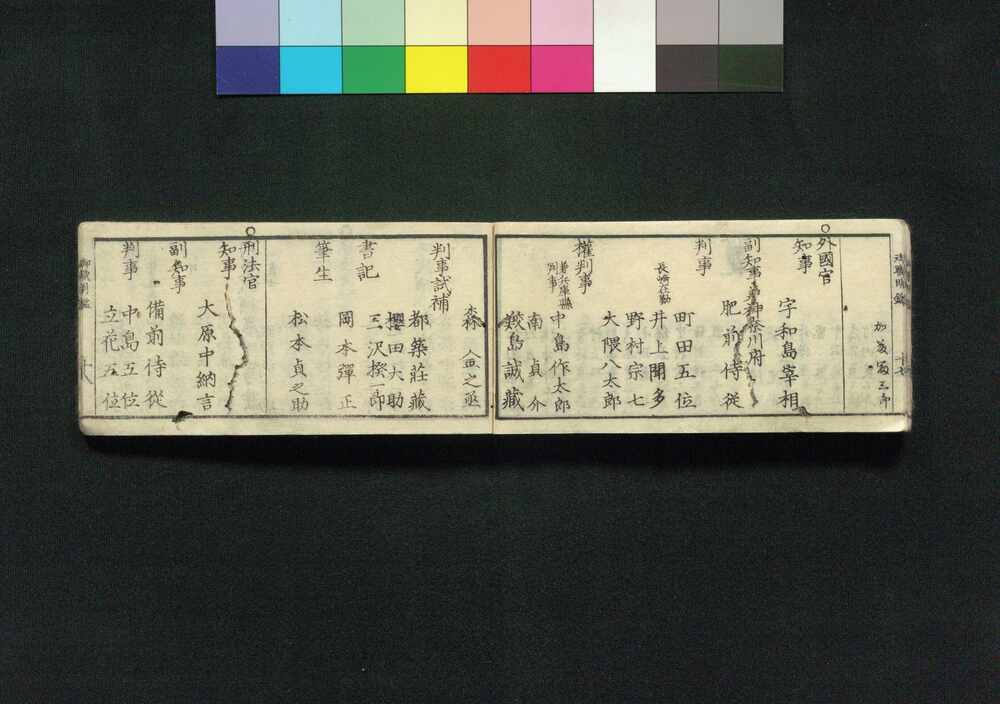 加藤富三郎
○外國官
知事
宇和島宰相
副知事兼神奈川府
肥前侍從
判事
町田五位
長崎在勤
井上聞多
野村宗七
大隈八太郎
權判事
兼兵庫縣判事
中島作太郎
南貞介
鮫島誠藏
森金之丞
判事試補
都築莊藏
櫻田大助
三沢揆一郎
書記
岡本彈正
筆生
松本貞之助
○刑法官
知事
大原中納言
副知事
備前侍從
判事
中島五位
立花五位
十八